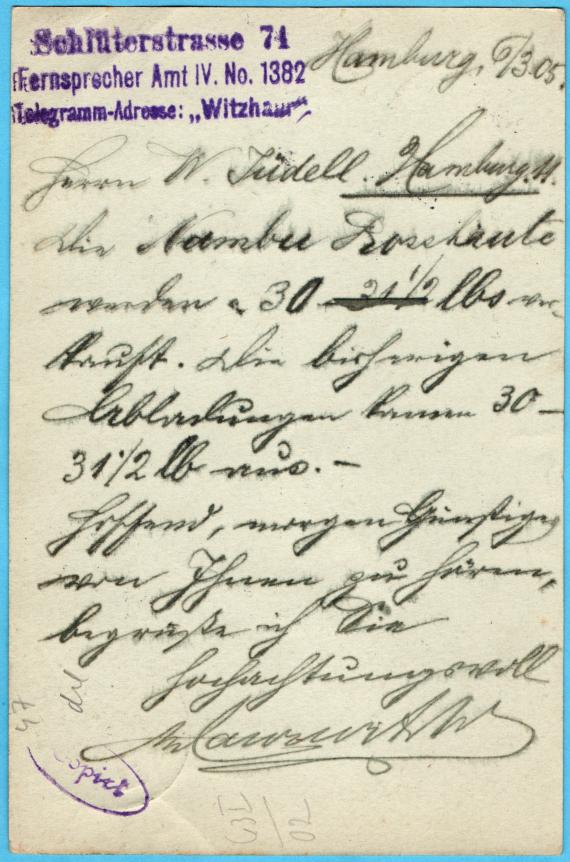 Schlüterstrasse 74
Fernsprecher Amt IV. No. 1382
Telegramm-Adresse: „Witzhaur“
Hamburg, 6/3.05.
Herrn W. Tüdell. Hamburg. 11.
Die Nambu Rosshäute
werden à 30 31 1/2 lbs ver-
kauft. Die bisherigen
Abladungen kamen 30 –
31 1/2 lb aus. –
Hoffend, morgen Günstiges
von Ihnen zu hören,
begrüße ich Sie
Hochachtungsvoll